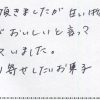 頂きましたが甘い物
がおいしいと言って
いました。
り寄せしたいお菓子